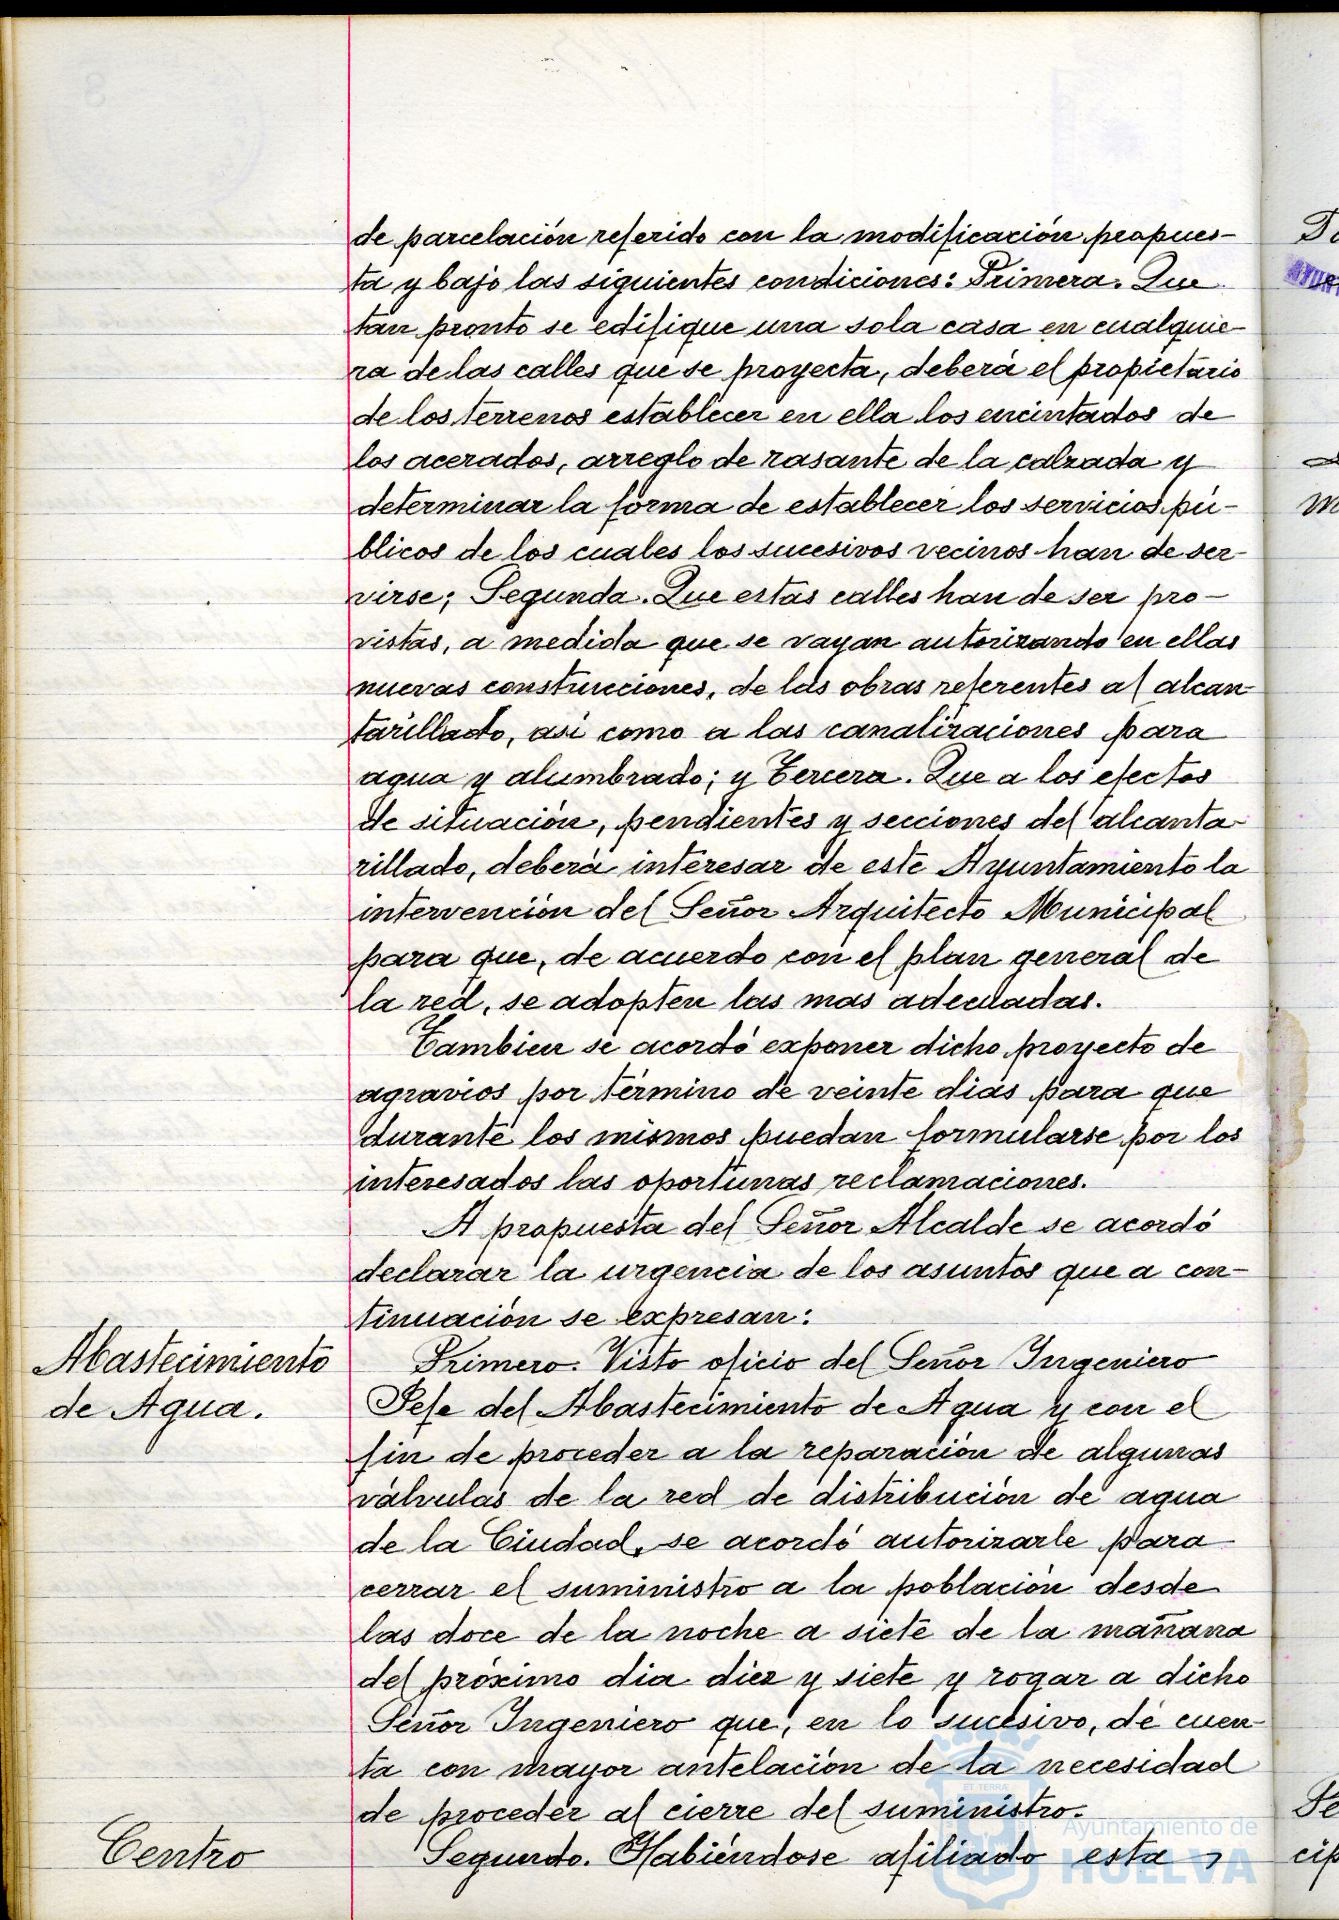 de parcelación referido con la modificación propues-
ta y bajo las siguientes condiciones: Primera. Que
tan pronto se edifique una sola casa en cualquie-
ra de las calles que se proyecta, deberá el propietario
de los terrenos establecer en ella los encintados de
los acerados, arreglo de rasante de la calzada y
determinar la forma de establecer los servicios pú-
blicos de los cuales los sucesivos vecinos han de ser-
virse; Segunda. Que estas calles han de ser pro-
vistas, a medida que se vayan autorizando en ellas
nuevas construcciones, de las obras referentes al alcan-
tarillado, así como a las canalizaciones para
agua y alumbrado; y Tercera. Que a los efectos
de situación, pendientes y secciones del alcanta-
rillado, deberá interesar de este Ayuntamiento la
intervención del Señor Arquitecto Municipal
para que, de acuerdo con el plan general de
la red, se adopten las mas adecuadas.
Tambien se acordó exponer dicho proyecto de
agravios por término de veinte dias para que
durante los mismos puedan formularse por los
interesados las oportunas reclamaciones.
A propuesta del Señor Alcalde se acordó
declarar la urgencia de los asuntos que a con-
tinuación se expresan:
Abastecimiento
de Agua.
Primero. Visto oficio del Señor Ingeniero
Jefe del Abastecimiento de Agua y con el
fin de proceder a la reparación de algunas
válvulas de la red de distribución de agua
de la Ciudad, se acordó autorizarle para
cerrar el suministro a la población desde
las doce de la noche a siete de la mañana
del próximo dia diez y siete y rogar a dicho
Señor Ingeniero que, en lo sucesivo, dé cuen-
ta con mayor antelación de la necesidad
de proceder al cierre del suministro.
Centro
Segundo. Habiéndose afiliado esta
ET TERRA
Ayuntamiento de
HUELVA